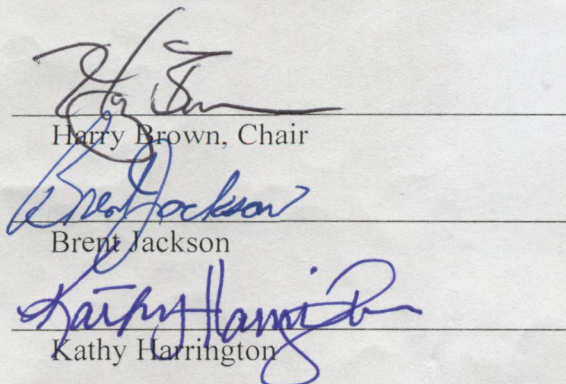 Harry Brown
Harry Brown, Chair
Brent Jackson
Brent Jackson
Kathy Harrington
Kathy Harrington